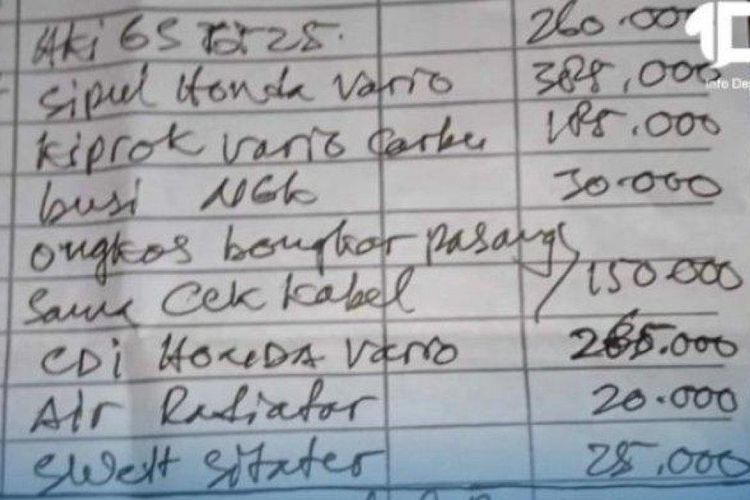 Aki GS 260.000
Sipul Honda Vario 385,000
Kiprok Vario Carbu 185.000
busi NGK 30.000
ongkos bongkar pasang
Sama Cek Kabel 150.000
CDi HONDA Vario 265.000
Air Radiator 20.000
Sweit Sitater 25,000
Info De